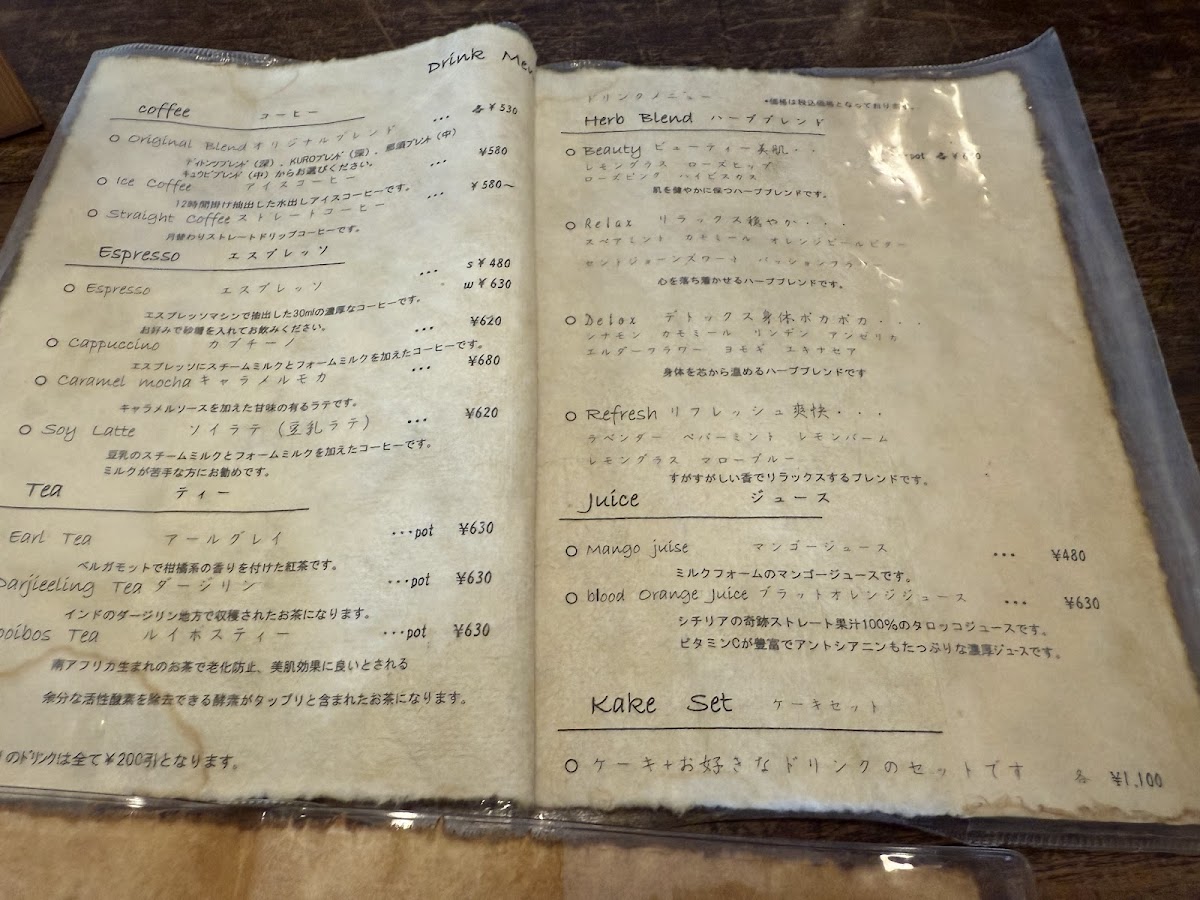 Drink Me
coffee コーヒー
Original Blend オリジナルブレンド ... 各¥530
デイトンツブレンド(深)、KUROブレンド(深)、那須ブレンド(中)
キュウピブレンド(中)からお選びください。
Ice Coffee アイスコーヒー ... ¥580
12時間掛け抽出した水出しアイスコーヒーです。
Straight Coffee ストレートコーヒー ... ¥580～
月替わりストレートドリップコーヒーです。
Espresso エスプレッソ
Espresso エスプレッソ ... s¥480
w¥630
エスプレッソマシンで抽出した30mlの濃厚なコーヒーです。
お好みで砂糖を入れてお飲みください。
Cappuccino カプチーノ ... ¥620
エスプレッソにスチームミルクとフォームミルクを加えたコーヒーです。
Caramel mocha キャラメルモカ ... ¥680
キャラメルソースを加えた甘味の有るラテです。
Soy Latte ソイラテ(豆乳ラテ) ... ¥620
豆乳のスチームミルクとフォームミルクを加えたコーヒーです。
ミルクが苦手な方にお勧めです。
Tea ティー
Earl Tea アールグレイ ...pot ¥630
ベルガモットで柑橘系の香りを付けた紅茶です。
Darjieeling Tea ダージリン ...pot ¥630
インドのダージリン地方で収穫されたお茶になります。
ooibos Tea ルイボスティー ...pot ¥630
南アフリカ生まれのお茶で老化防止、美肌効果に良いとされる
余分な活性酸素を除去できる酵素がタップリと含まれたお茶になります。
のドリンクは全て¥200引となります。
ドリンクメニュー *価格は税込価格となっております。
Herb Blend ハーブブレンド
Beauty ビューティー美肌・・ pot 各
レモングラス ローズヒップ
ローズピンク ハイビスカス
肌を健やかに保つハーブブレンドです。
Relax リラックス穏やか・・・
スペアミント カモミール オレンジピールビター
セントジョーンズワート パッションフラワー
心を落ち着かせるハーブブレンドです。
Detox デトックス身体ポカポカ・・・
シナモン カモミール リンデン アンゼリカ
エルダーフラワー ヨモギ エキナセア
身体を芯から温めるハーブブレンドです
Refresh リフレッシュ爽快・・・
ラベンダー ペパーミント レモンバーム
レモングラス マローブルー
すがすがしい香でリラックスするブレンドです。
Juice ジュース
Mango juise マンゴージュース ... ¥480
ミルクフォームのマンゴージュースです。
blood Orange Juice ブラットオレンジジュース ... ¥630
シチリアの奇跡ストレート果汁100%のタロッコジュースです。
ビタミンCが豊富でアントシアニンもたっぷりな濃厚ジュースです。
Kake Set ケーキセット
ケーキ+お好きなドリンクのセットです 各 ¥1,100